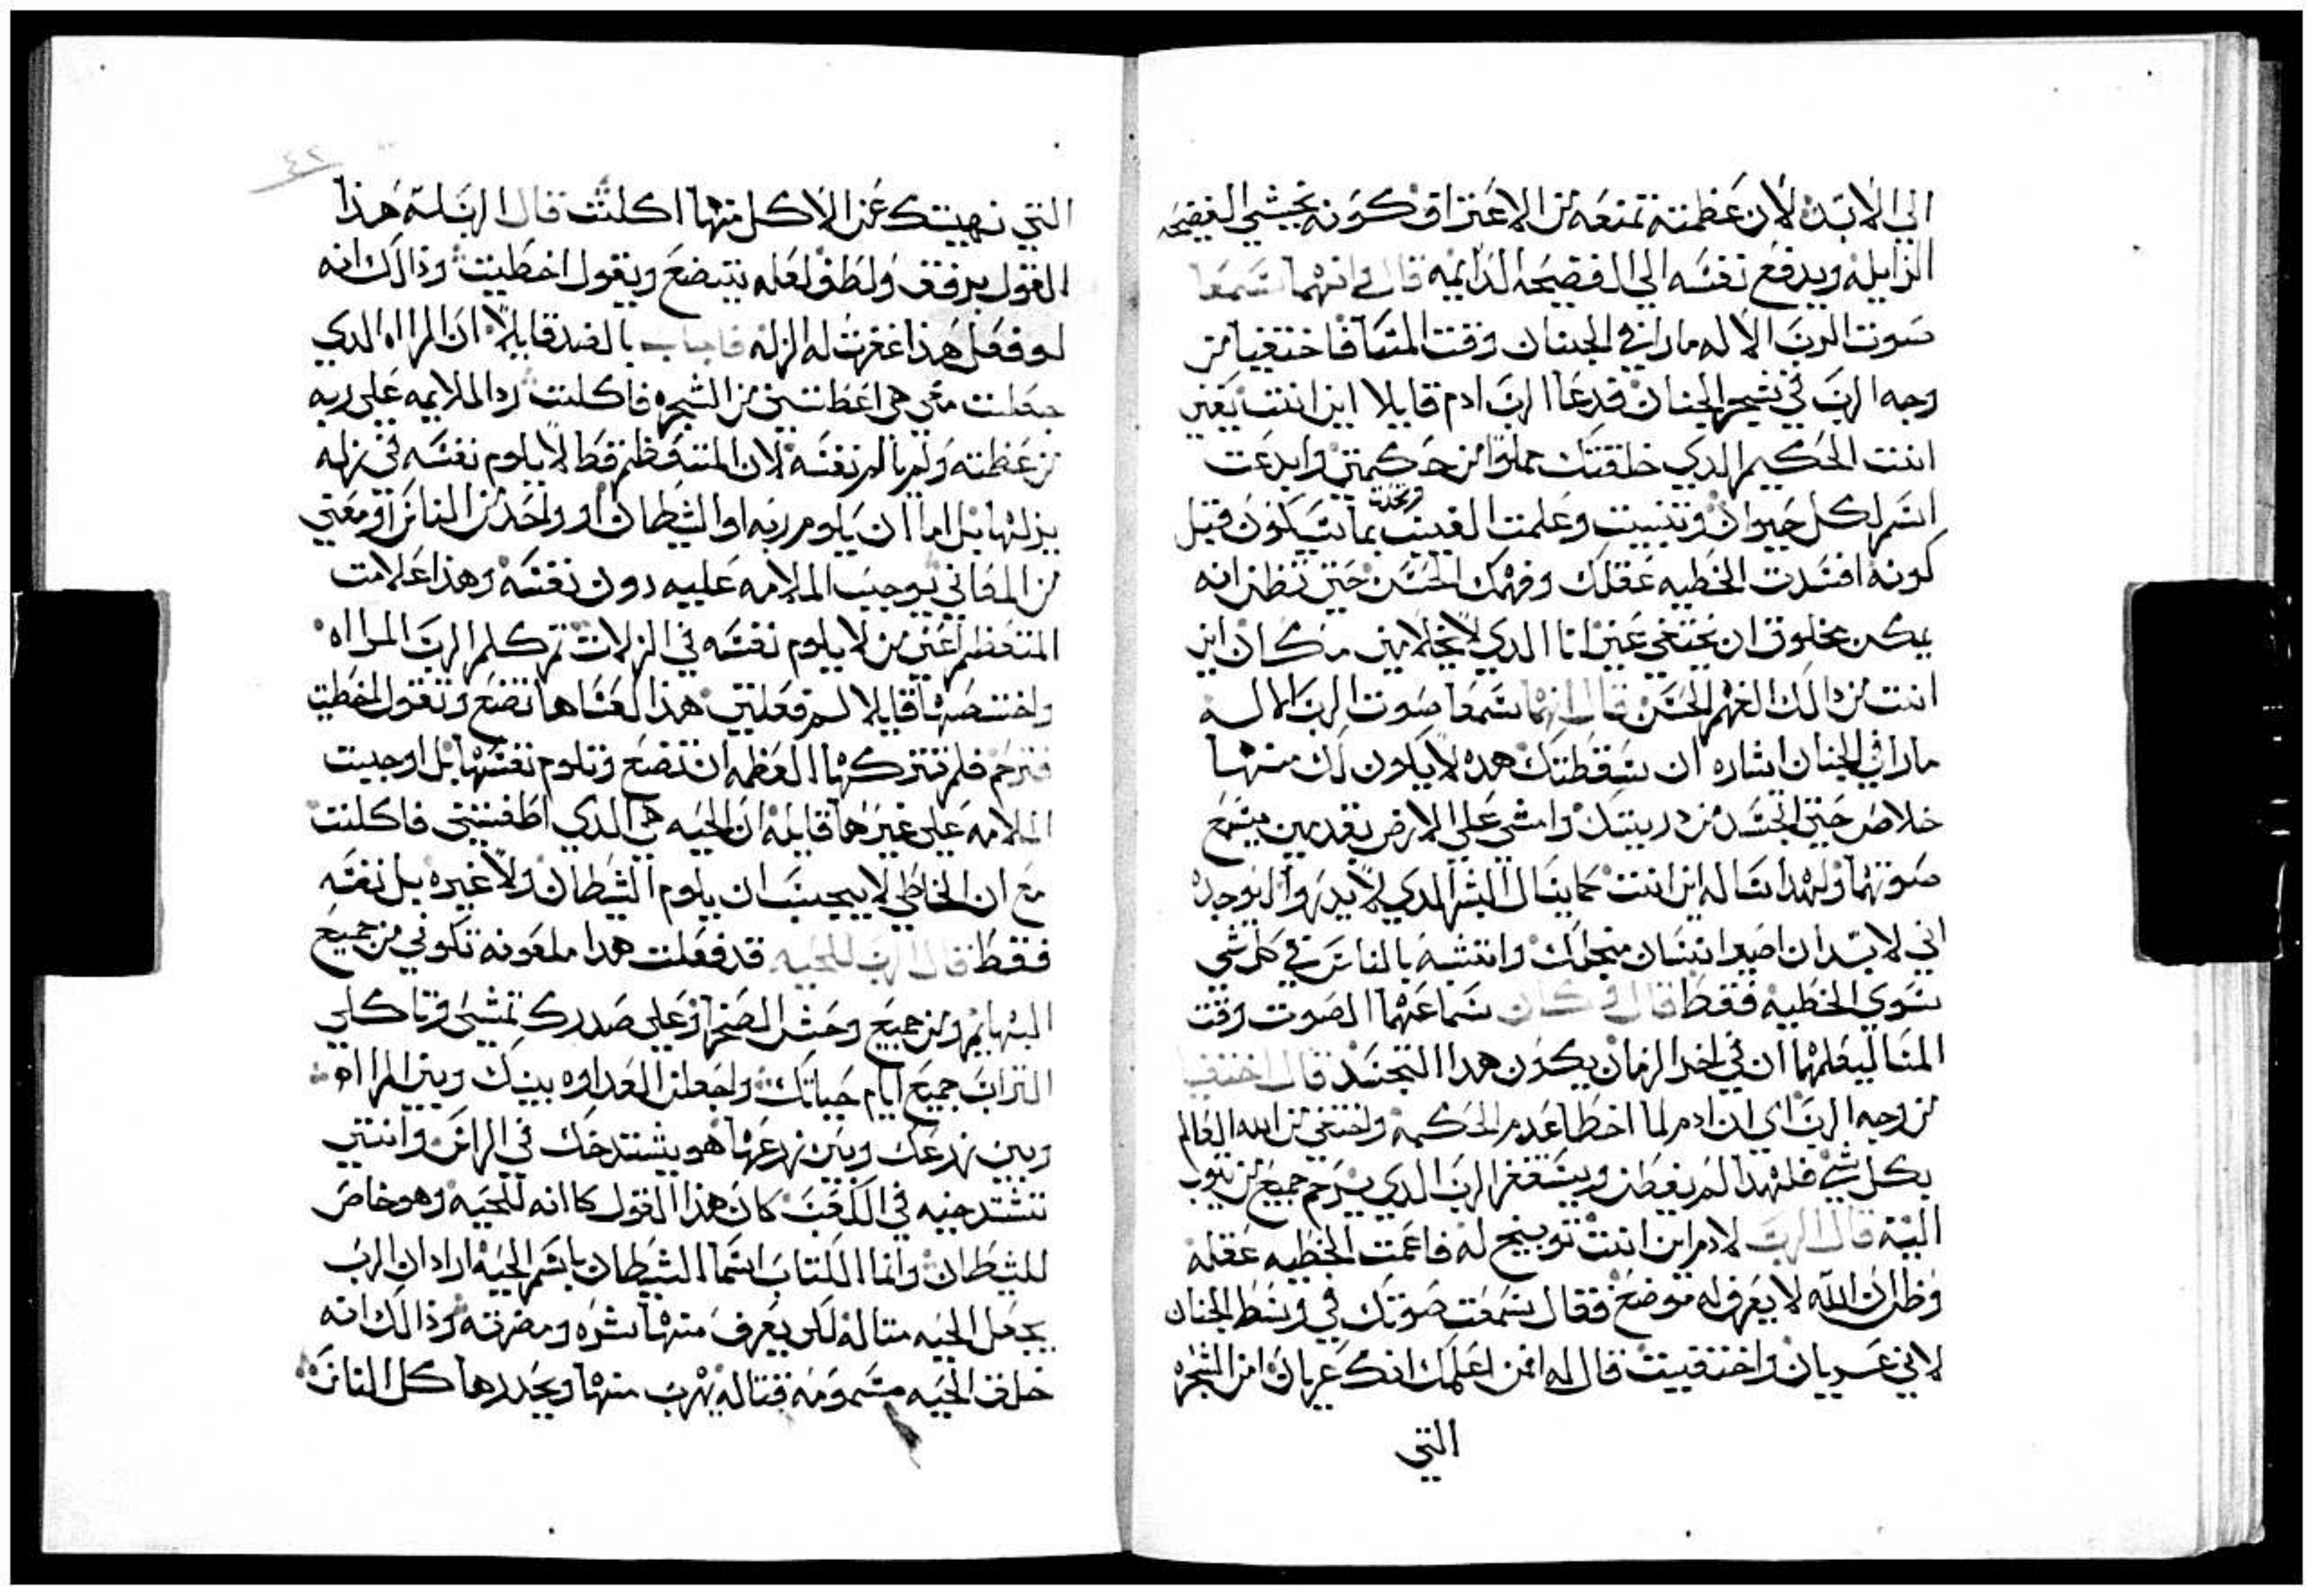 الي الابد لان عظمته تمنعه من الاعتراف كونه يخشي الفضيحه
الزايله ويدفع نفسه الي الفضيحه الدايمه قال في انهما سمعا
صوت الرب الاله مارا في الجنان وقت المسا فاختفيا من
وجه الرب في شجر الجنان فدعا الرب ادم قايلا اين انت يعني
انت الحكيم الدي خلقتك مملوا من حكمتي وابدعت
اسم لكل حيوان وتنبيت وعلمت الغيب وتحدت بما يتكون قبل
كونه افسدت الخطيه عقلك وفهمك الحسن حتي تظن انه
يمكن مخلوق ان يختفي عني انا الدي لا يخلا مني مكان اين
انت من دالك الفهم الحسن قال انهما سمعا صوت الرب الاله
مارا في الجنان اشاره ان سقطتك هده لا يكون لك منها
خلاص حتي اتجسد من دريتك وامشي علي الارض بقدمين يسمع
صوتهما ولهدا ساله اين انت كما يسال البشر الدي لا يدروا اليوجده
اني لا بد ان اصير انسان من اجلك واتشبه بالناس في كل شي
سوي الخطيه فقط قال في كان سماعهما الصوت وقت
المسا ليعلمها ان في اخر الزمان يكون هدا التجسد قال اختفيا
من وجه الرب اي ان ادم لما اخطا عدم الحكمه واختفي من الله العالم
بكل شي فلهدا لم يفطن ويستغفر الرب الدي يرحم جميع من يتوب
اليه قال الرب لادم اين انت توبيخ له فاعمت الخطيه عقله
وظن ان الله لا يعرف له موضع فقال سمعت صوتك في وسط الجنان
لاني عريان واختفيت قال له من اعلمك انك عريان امن الشجره
التي
٤٢
التي نهيتك عن الاكل منها اكلت قال الرب له هذا
القول برفق ولطف لعله يتضع ويقول اخطيت وذالك انه
لو فعل هذا غفرت له الزله فاجاب بالضد قايلا ان المراه الدي
جعلت معي هي اعطتني من الشجره فاكلت رد الملايمه علي ربه
من عظمته ولم يالم نفسه لان المتعظم قط لا يلوم نفسه في زله
يزلها بل اما ان يلوم ربه او الشيطان او واحد من الناس او معني
من المعاني يوجب الملامه عليه دون نفسه وهذا علامت
المتعظم اعني من لا يلوم نفسه في الزلات ثم كلم الرب المراه
واختصها قايلا لم فعلتي هذا لعساها تضع وتقول اخطيت
فترحم فلم تتركها العظمه ان تتضع وتلوم نفسها بل اوجبت
الملامه علي غيرها قايله ان الحيه هي الدي اطغتني فاكلت
مع ان الخاطي لا يجب ان يلوم الشيطان ولا غيره بل نفسه
فقط قال الرب للحيه قد فعلت هدا ملعونه تكوني من جميع
البهايم ومن جميع وحش الصحرا وعلي صدرك تمشي وتاكلي
التراب جميع ايام حياتك واجعل العداوه بينك وبين المراه
وبين زرعك وبين زرعها هو يشتدخك في الراس وانتي
تشتدخيه في الكعب كان هذا القول كاانه للحيه وهو خاص
للشيطان وانما الكتاب اسما الشيطان باسم الحيه اراد ان الرب
يجعل الحيه مثاله لكي يعرف منها شره ومضرته وذالك انه
خلق الحيه مسمومه قتاله يهرب منها ويحدرها كل الناس